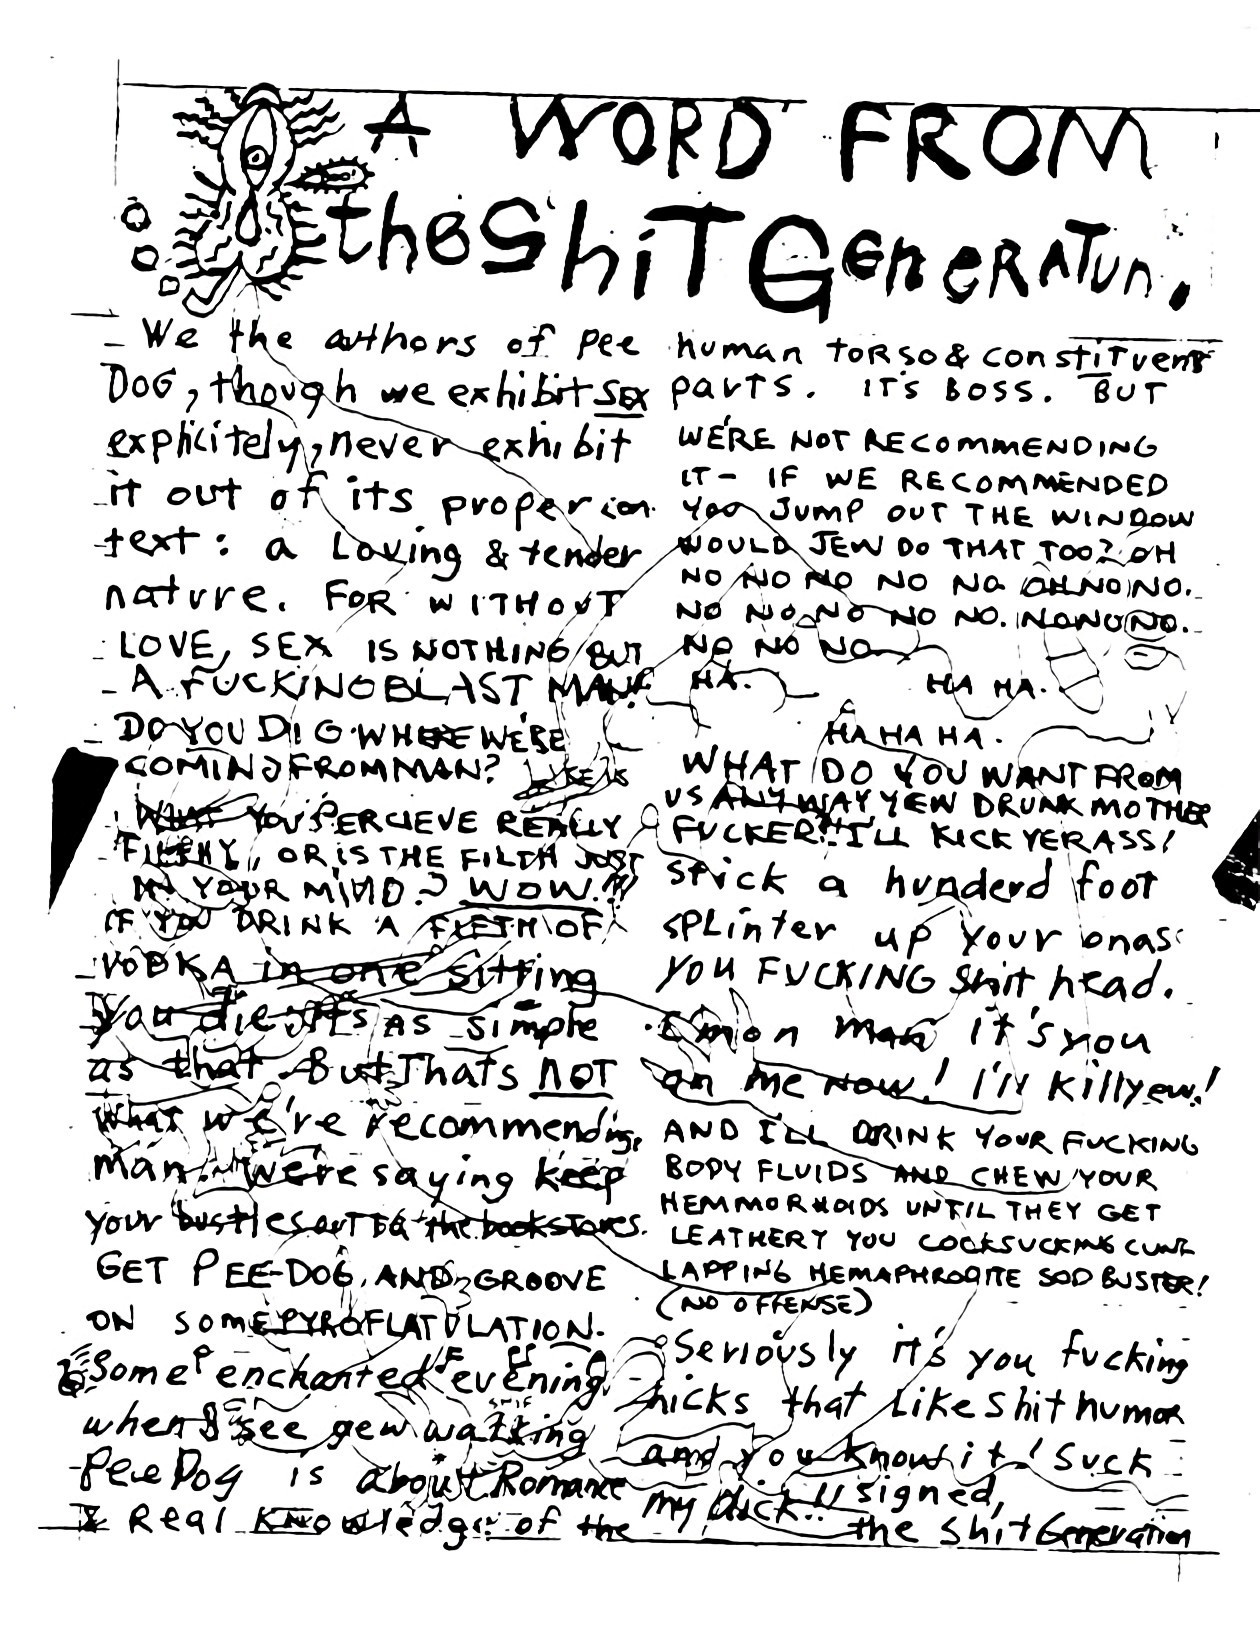 A WORD FROM
the ShiT GenerATun.
We the authors of Pee
DOG, though we exhibit SEX
explicitely, never exhibit
it out of its proper con-
text: a Loving & tender
nature. FOR WITHOUT
LOVE, SEX IS NOTHING BUT
A FUCKING BLAST MAN!
DO YOU DIG WHERE WE'RE
COMING FROM MAN?
WHAT YOU PERCIEVE REALLY
FILTHY, OR IS THE FILTH JUST
IN YOUR MIND? WOW!!!
IF YOU DRINK A FIFTH OF
VODKA in one sitting
You die. It's AS simple
as that. But Thats NOT
what we're recommending,
man. We're saying keep
your bustles out ta the bookstores.
GET PEE-DOG AND GROOVE
ON SOME PYROFLATULATION.
Some enchanted evening
when I see yew walking
Pee Dog is about Romance
& Real Knowledge of the
human torso & constituent
parts. IT'S BOSS. BUT
WE'RE NOT RECOMMENDING
IT- IF WE RECOMMENDED
YOO JUMP OUT THE WINDOW
WOULD JEW DO THAT TOO? OH
NO NO NO NO NO. OH NO NO.
NO NO NO NO NO. NO NO NO.
NO NO NO
HA. HA HA.
HA HA HA.
WHAT DO YOU WANT FROM
US ANYWAY YEW DRUNK MOTHER
FUCKER!! I'LL KICK YER ASS!
stick a hunderd foot
SPLinter up your onas
you FUCKING Shit head.
C'mon man it's you
on me now! I'll Kill yew!
AND I'LL DRINK YOUR FUCKING
BODY FLUIDS AND CHEW YOUR
HEMMORHOIDS UNTIL THEY GET
LEATHERY YOU COCKSUCKING CUNT
LAPPING HEMAPHRODITE SOD BUSTER!
(NO OFFENSE)
Seriously it's you fucking
hicks that Like Shit humor
and you Know it! Suck
my dick!! Signed,
the Shit Generation